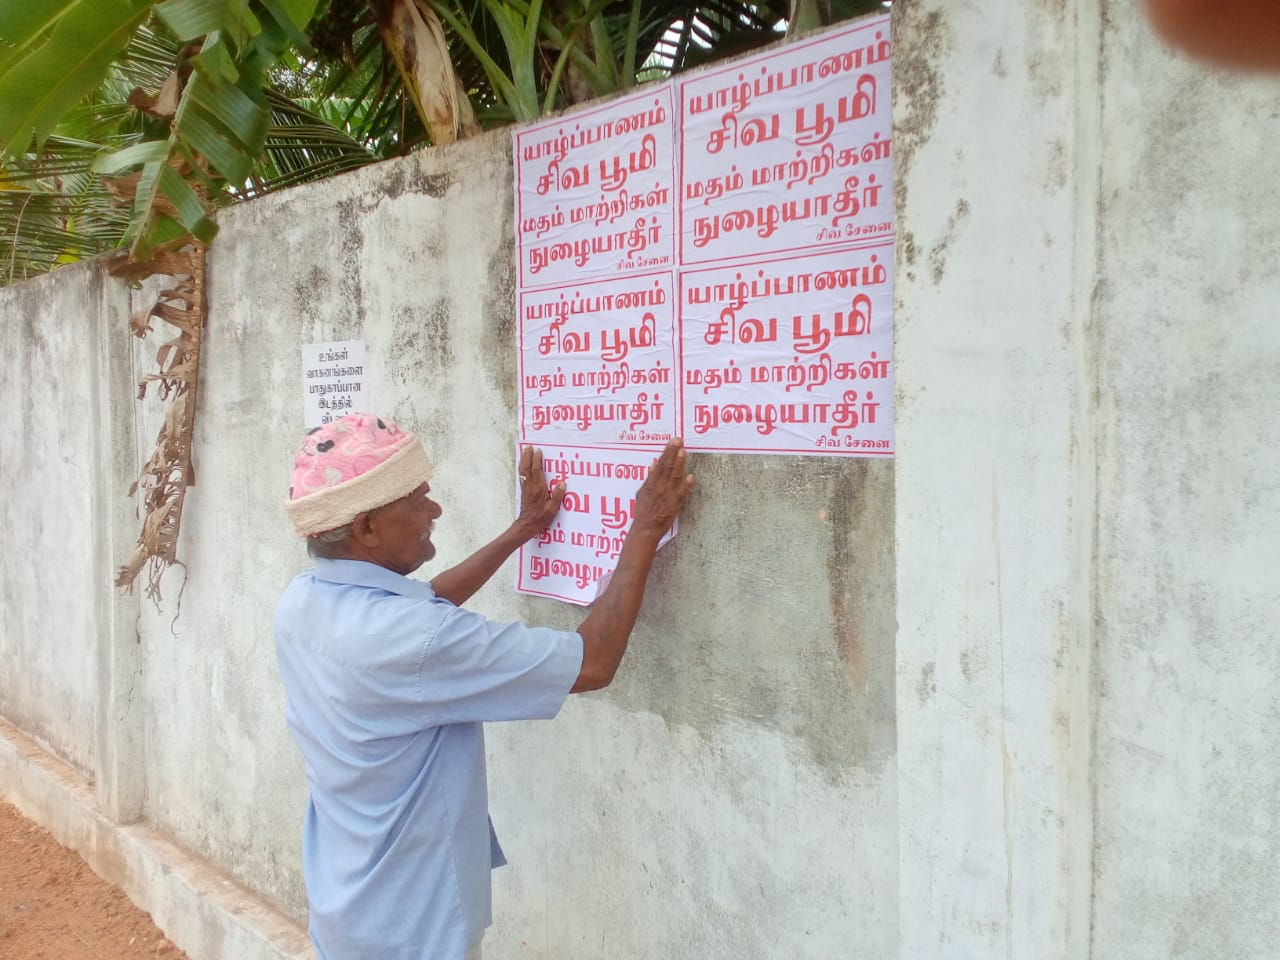 யாழ்ப்பாணம்
சிவ பூமி
மதம் மாற்றிகள்
நுழையாதீர்
சிவ சேனை
யாழ்ப்பாணம்
சிவ பூமி
மதம் மாற்றிகள்
நுழையாதீர்
சிவ சேனை
யாழ்ப்பாணம்
சிவ பூமி
மதம் மாற்றிகள்
நுழையாதீர்
சிவ சேனை
யாழ்ப்பாணம்
சிவ பூமி
மதம் மாற்றிகள்
நுழையாதீர்
சிவ சேனை
உங்கள்
வாகனங்களை
பாதுகாப்பான
இடத்தில்